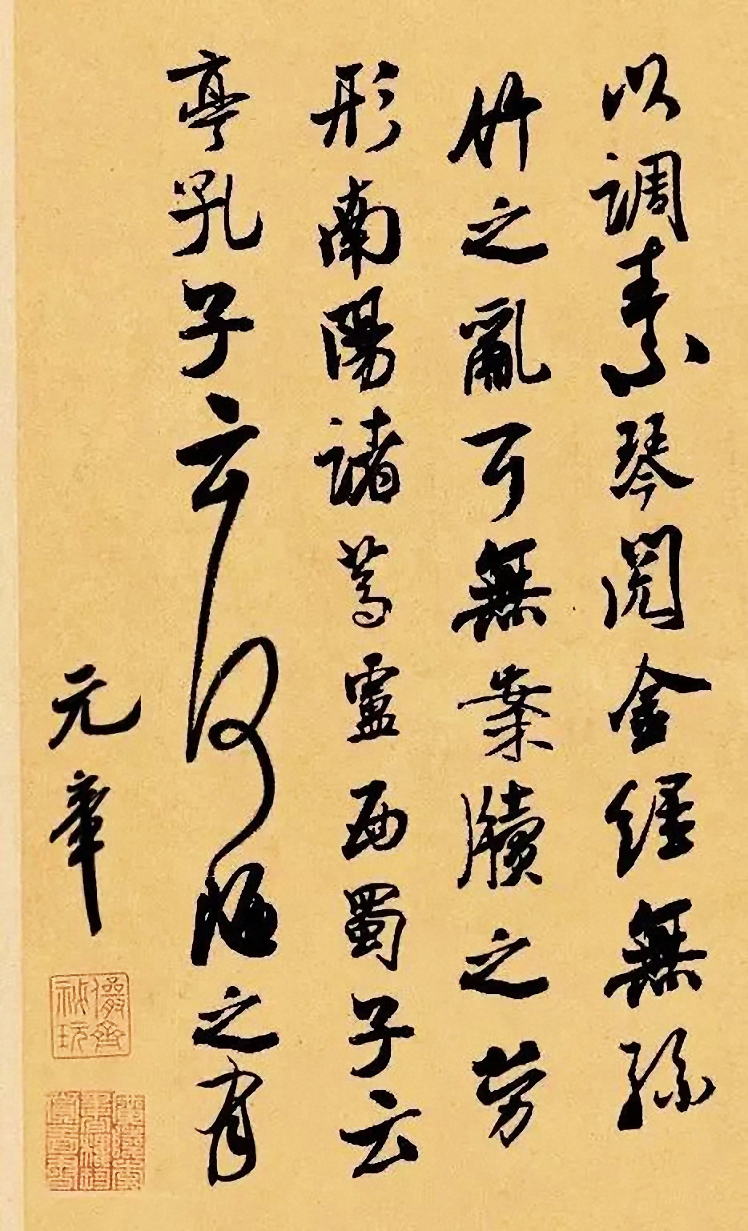 以調素琴閱金經無絲
竹之亂耳無案牘之勞
形南陽諸葛盧西蜀子云
亭孔子云何陋之有
元章
儼齋秘玩